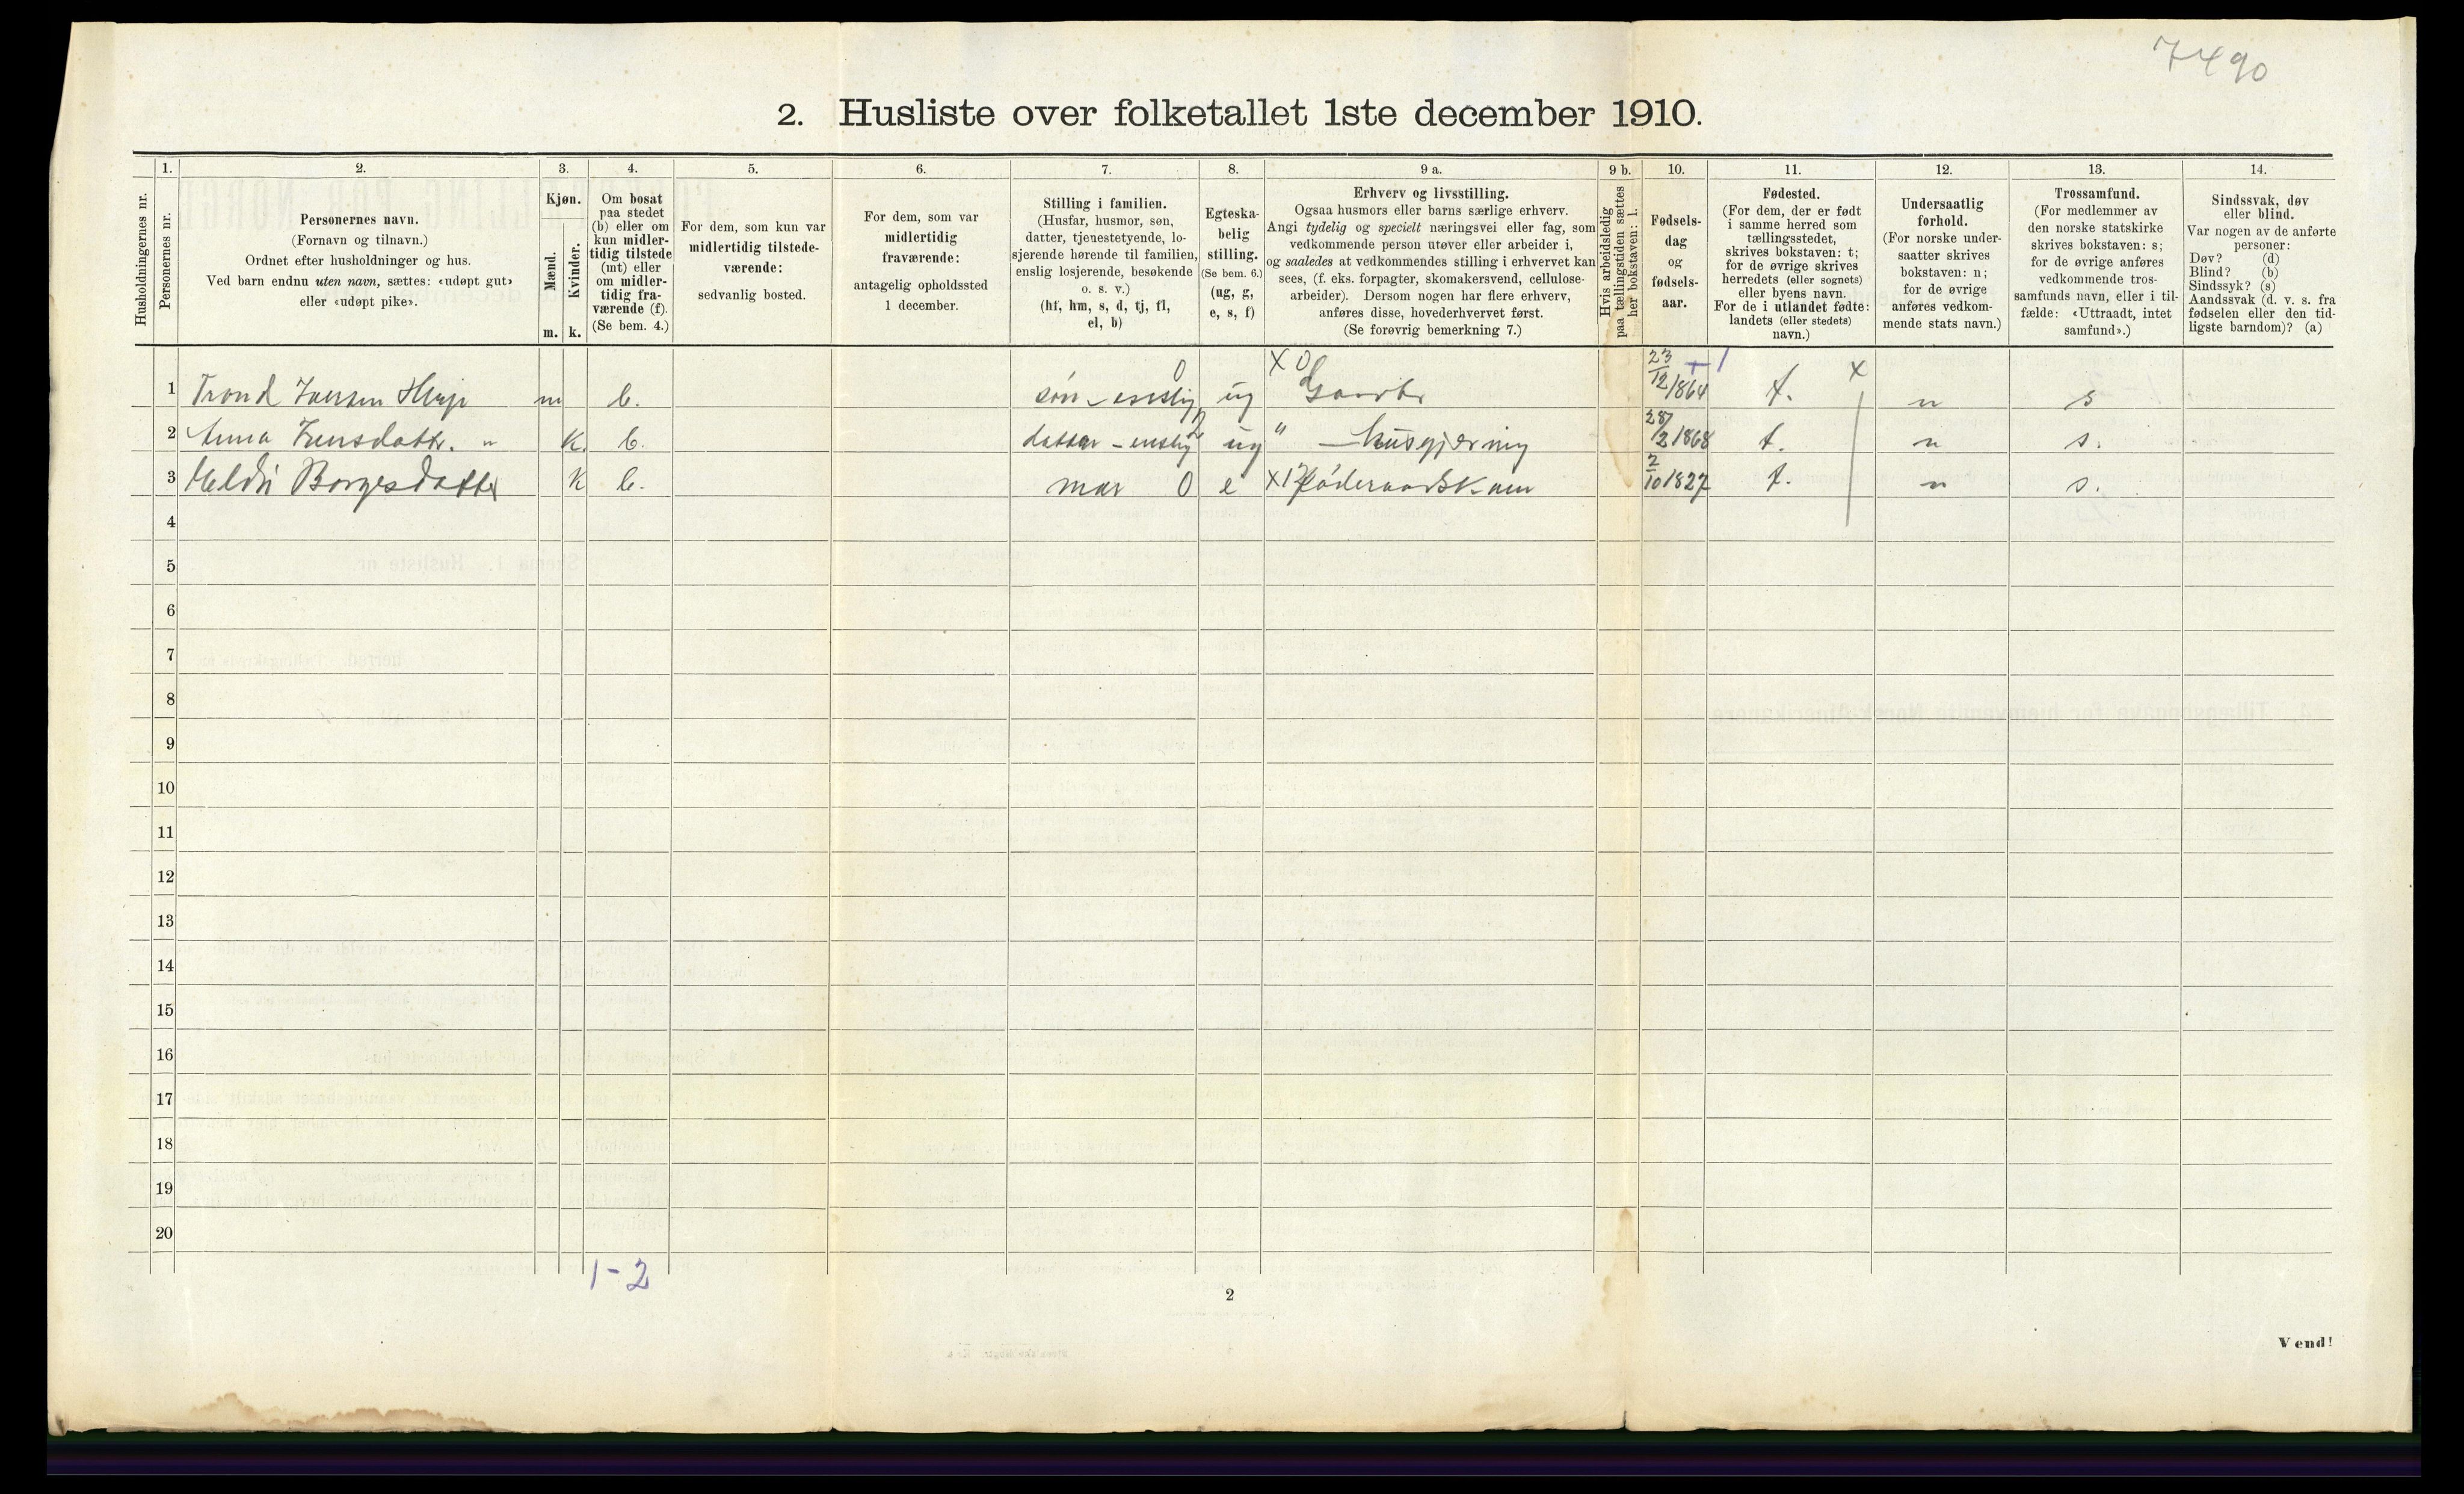 7490
2. Husliste over folketallet 1ste december 1910.
Husholdningernes nr.
1.
Personernes nr.
2.
Personernes navn.
(Fornavn og tilnavn.)
Ordnet efter husholdninger og hus.
Ved barn endnu uten navn, sættes: «udøpt gut»
eller «udøpt pike».
3.
Kjøn.
Mænd.
Kvinder.
m. k.
4.
Om bosat
paa stedet
(b) eller om
kun midler-
tidig tilstede
(mt) eller
om midler-
tidig fra-
værende (f).
(Se bem. 4.)
5.
For dem, som kun var
midlertidig tilstede-
værende:
sedvanlig bosted.
6.
For dem, som var
midlertidig
fraværende:
antagelig opholdssted
1 december.
7.
Stilling i familien.
(Husfar, husmor, søn,
datter, tjenestetyende, lo-
sjerende hørende til familien,
enslig losjerende, besøkende
o. s. v.)
(hf, hm, s, d, tj, fl,
el, b)
8.
Egteska-
belig
stilling.
(Se bem. 6.)
(ug, g,
e, s, f)
9 a.
Erhverv og livsstilling.
Ogsaa husmors eller barns særlige erhverv.
Angi tydelig og specielt næringsvei eller fag, som
vedkommende person utøver eller arbeider i,
og saaledes at vedkommendes stilling i erhvervet kan
sees, (f. eks. forpagter, skomakersvend, cellulose-
arbeider). Dersom nogen har flere erhverv,
anføres disse, hovederhvervet først.
(Se forøvrig bemerkning 7.)
9 b.
Hvis arbeidsledig
paa tællingstiden sættes
her bokstaven: l.
10.
Fødsels-
dag
og
fødsels-
aar.
11.
Fødested.
(For dem, der er født
i samme herred som
tællingsstedet,
skrives bokstaven: t;
for de øvrige skrives
herredets (eller sognets)
eller byens navn.
For de i utlandet fødte:
landets (eller stedets)
navn.)
12.
Undersaatlig
forhold.
(For norske under-
saatter skrives
bokstaven: n;
for de øvrige
anføres vedkom-
mende stats navn.)
13.
Trossamfund.
(For medlemmer av
den norske statskirke
skrives bokstaven: s;
for de øvrige anføres
vedkommende tros-
samfunds navn, eller i til-
fælde: «Uttraadt, intet
samfund».)
14.
Sindssvak, døv
eller blind.
Var nogen av de anførte
personer:
Døv? (d)
Blind? (b)
Sindssyk? (s)
Aandssvak (d. v. s. fra
fødselen eller den tid-
ligste barndom)? (a)
1 Trond m b. søn - enslig 0 ug X 0 23/12 1864 t. x n s
2 Anna Jensdattr. " K. b. datter - enslig ug " - husgjerning 28/2 1868 t. n s.
3 Borgesdatter K b. mor 0 e X Føderaadskone 2/10 1827 t. n s.
4
5
6
7
8
9
10
11
12
13
14
15
16
17
18
19
20
1-2
2
Vend!